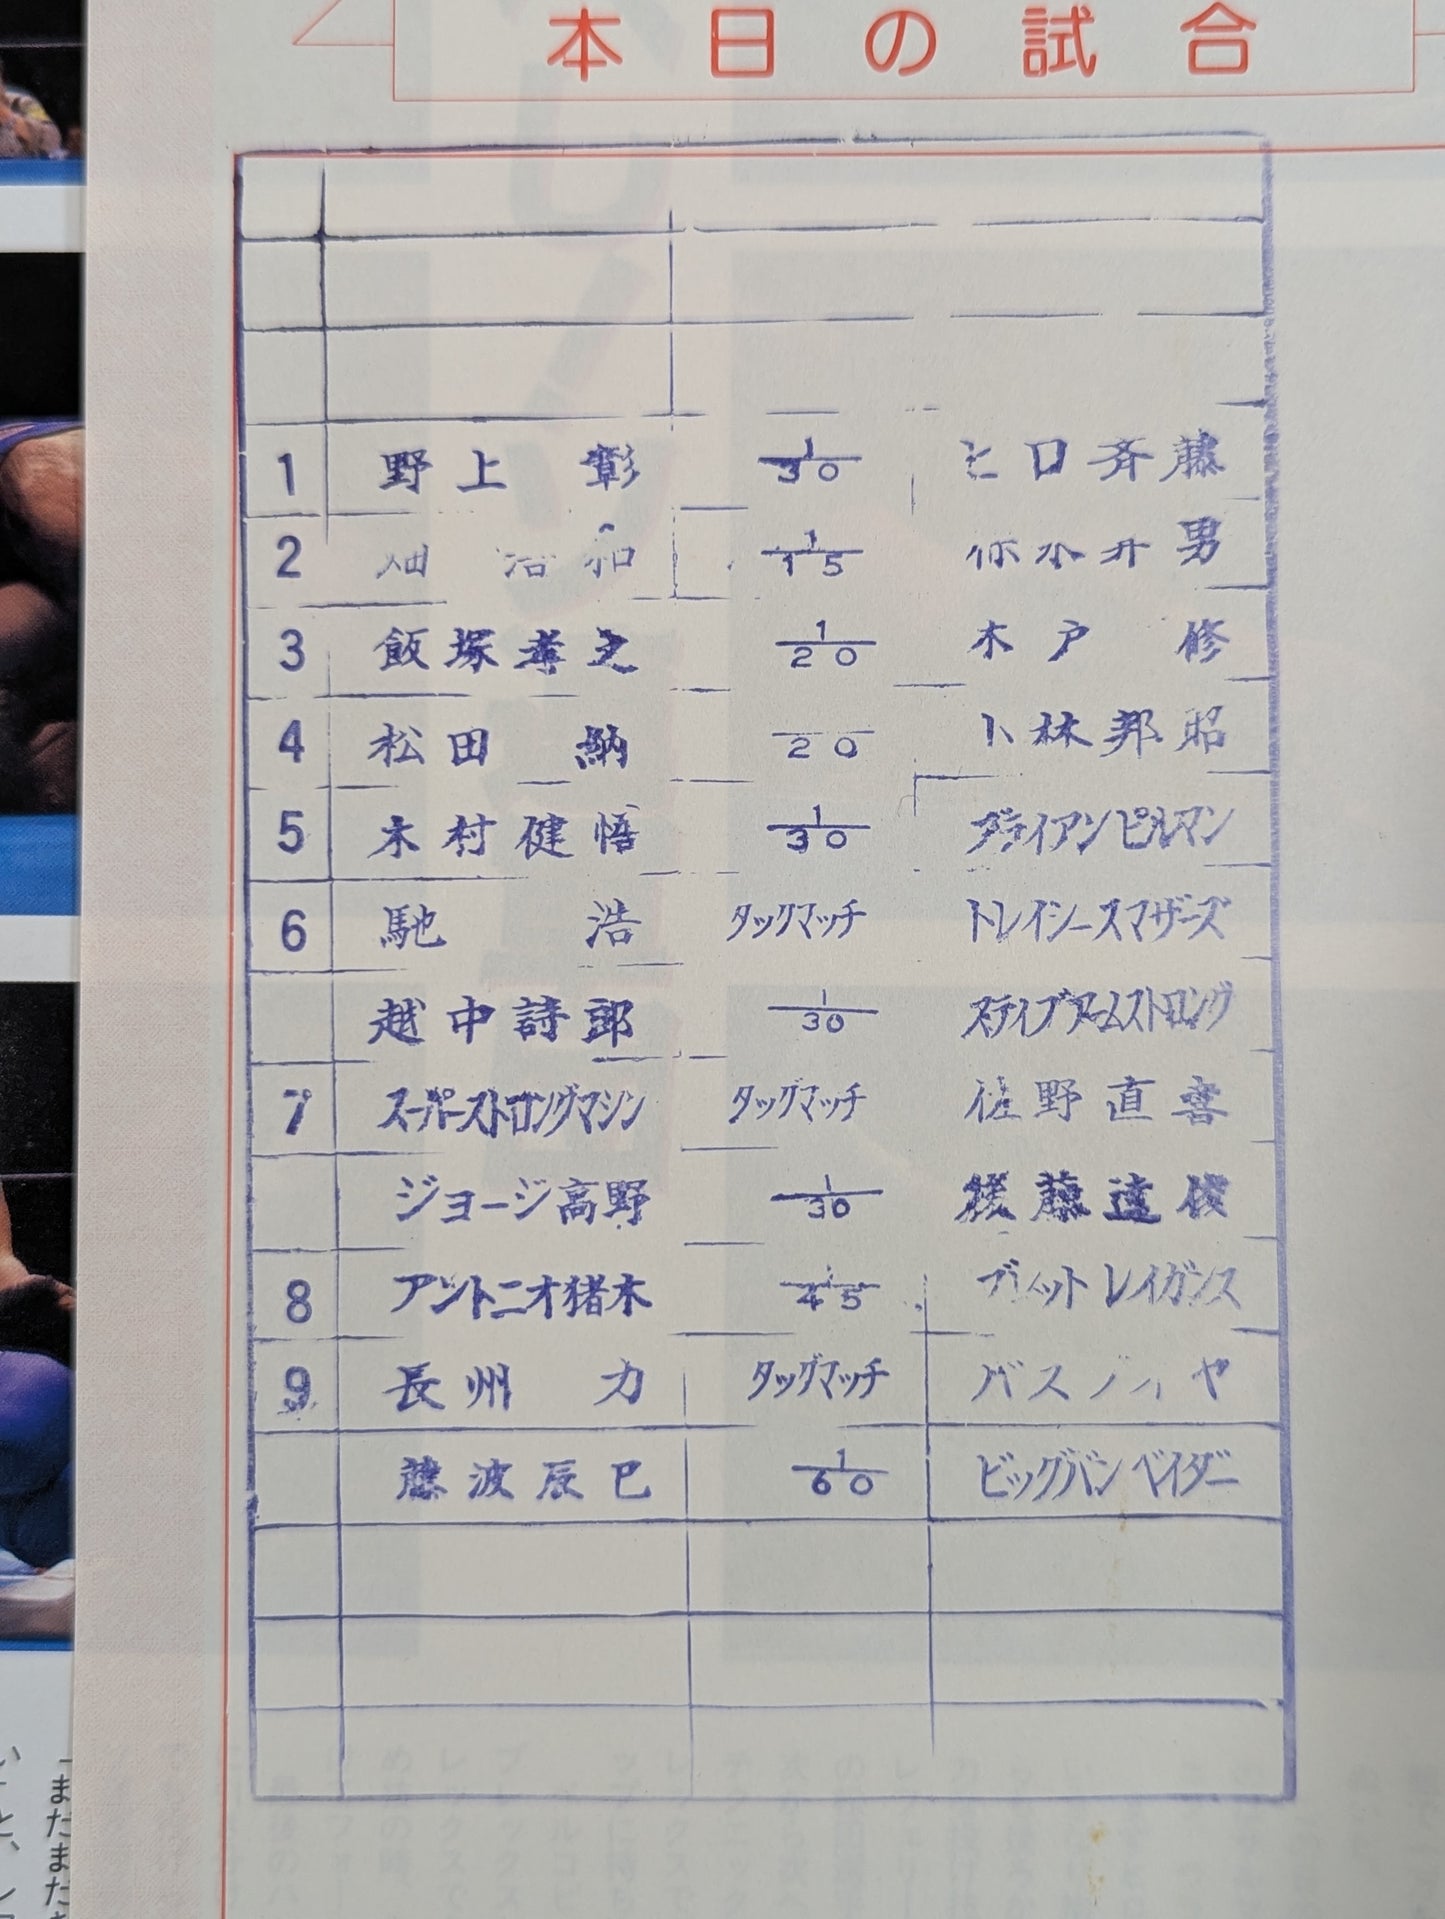 本日の試合
1 野上 彰 1/30 ヒロ斉藤
2 畑 浩和 1/15 男
3 飯塚孝之 1/20 木戸 修
4 松田 納 20 小林邦昭
5 木村健悟 1/30 ブライアンピルマン
6 馳 浩 タッグマッチ トレイシースマザーズ
越中詩郎 1/30 スティブアームストロング
7 スーパーストロングマシン タッグマッチ 佐野直喜
ジョージ高野 1/30 後藤達俊
8 アントニオ猪木 1/45 ブラットレイガンス
9 長州 力 タッグマッチ
藤波辰巳 1/60 ビッグバンベイダー
「まだまだ